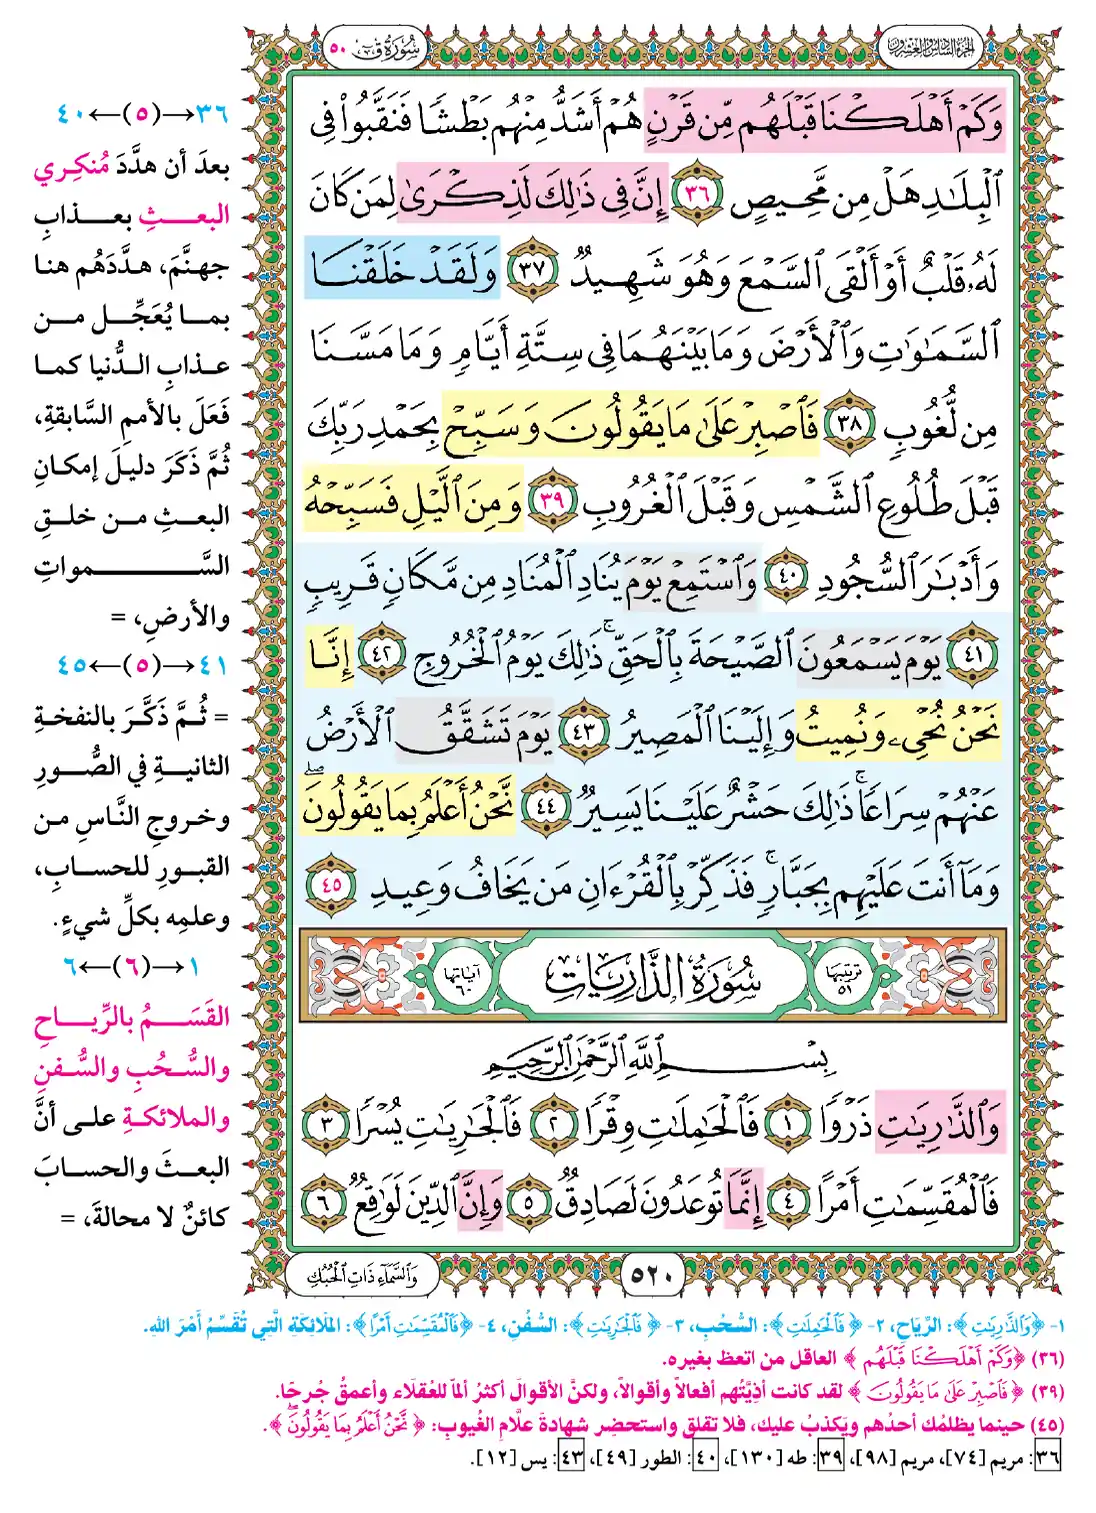 الجزء السادس والعشرون
سُورَةُ قٓ ٥٠
وَكَمْ أَهْلَكْنَا قَبْلَهُم مِّن قَرْنٍ هُمْ أَشَدُّ مِنْهُم بَطْشًا فَنَقَّبُوا۟ فِى
ٱلْبِلَـٰدِ هَلْ مِن مَّحِيصٍ ٣٦ إِنَّ فِى ذَٰلِكَ لَذِكْرَىٰ لِمَن كَانَ
لَهُۥ قَلْبٌ أَوْ أَلْقَى ٱلسَّمْعَ وَهُوَ شَهِيدٌ ٣٧ وَلَقَدْ خَلَقْنَا
ٱلسَّمَـٰوَٰتِ وَٱلْأَرْضَ وَمَا بَيْنَهُمَا فِى سِتَّةِ أَيَّامٍ وَمَا مَسَّنَا
مِن لُّغُوبٍ ٣٨ فَٱصْبِرْ عَلَىٰ مَا يَقُولُونَ وَسَبِّحْ بِحَمْدِ رَبِّكَ
قَبْلَ طُلُوعِ ٱلشَّمْسِ وَقَبْلَ ٱلْغُرُوبِ ٣٩ وَمِنَ ٱلَّيْلِ فَسَبِّحْهُ
وَأَدْبَـٰرَ ٱلسُّجُودِ ٤٠ وَٱسْتَمِعْ يَوْمَ يُنَادِ ٱلْمُنَادِ مِن مَّكَانٍ قَرِيبٍ
٤١ يَوْمَ يَسْمَعُونَ ٱلصَّيْحَةَ بِٱلْحَقِّ ۚ ذَٰلِكَ يَوْمُ ٱلْخُرُوجِ ٤٢ إِنَّا
نَحْنُ نُحْىِۦ وَنُمِيتُ وَإِلَيْنَا ٱلْمَصِيرُ ٤٣ يَوْمَ تَشَقَّقُ ٱلْأَرْضُ
عَنْهُمْ سِرَاعًا ۚ ذَٰلِكَ حَشْرٌ عَلَيْنَا يَسِيرٌ ٤٤ نَّحْنُ أَعْلَمُ بِمَا يَقُولُونَ ۖ
وَمَآ أَنتَ عَلَيْهِم بِجَبَّارٍ ۖ فَذَكِّرْ بِٱلْقُرْءَانِ مَن يَخَافُ وَعِيدِ ٤٥
ترتيبها ٥١ سُورَةُ الذَّارِيَاتِ آياتها ٦٠
بِسْمِ ٱللَّهِ ٱلرَّحْمَـٰنِ ٱلرَّحِيمِ
وَٱلذَّٰرِيَـٰتِ ذَرْوًا ١ فَٱلْحَـٰمِلَـٰتِ وِقْرًا ٢ فَٱلْجَـٰرِيَـٰتِ يُسْرًا ٣
فَٱلْمُقَسِّمَـٰتِ أَمْرًا ٤ إِنَّمَا تُوعَدُونَ لَصَادِقٌ ٥ وَإِنَّ ٱلدِّينَ لَوَٰقِعٌ ٦
وَٱلسَّمَآءِ ذَاتِ ٱلْحُبُكِ
٥٢٠
٣٦→(٥)←٤٠
بعدَ أن هدَّدَ مُنكِري
البعثِ بعذابِ
جهنَّمَ، هدَّدَهُم هنا
بما يُعَجِّل من
عذابِ الدُّنيا كما
فَعَلَ بالأممِ السَّابقةِ،
ثُمَّ ذَكَرَ دليلَ إمكانِ
البعثِ من خلقِ
السَّمواتِ
والأرضِ، =
٤١→(٥)←٤٥
= ثُمَّ ذَكَّرَ بالنفخةِ
الثانيةِ في الصُّورِ
وخروجِ النَّاسِ من
القبورِ للحسابِ،
وعلمِه بكلِّ شيءٍ.
١→(٦)←٦
القَسَمُ بالرِّياحِ
والسُّحُبِ والسُّفنِ
والملائكةِ على أنَّ
البعثَ والحسابَ
كائنٌ لا محالةَ، =
١- ﴿وَٱلذَّٰرِيَـٰتِ﴾: الرِّيَاحِ، ٢- ﴿فَٱلْحَـٰمِلَـٰتِ﴾: السُّحُبِ، ٣- ﴿فَٱلْجَـٰرِيَـٰتِ﴾: السُّفُنِ، ٤- ﴿فَٱلْمُقَسِّمَـٰتِ أَمْرًا﴾: المَلَائِكَةِ الَّتِي تُقَسِّمُ أَمْرَ اللهِ.
(٣٦) ﴿وَكَمْ أَهْلَكْنَا قَبْلَهُم﴾ العاقل من اتعظ بغيره.
(٣٩) ﴿فَٱصْبِرْ عَلَىٰ مَا يَقُولُونَ﴾ لقد كانت أذِيَّتُهم أفعالاً وأقوالاً، ولكنَّ الأقوالَ أكثرُ ألماً للعُقلَاء وأعمقُ جُرحًا.
(٤٥) حينما يظلمُك أحدُهم ويَكذبُ عليك، فلا تقلق واستحضِر شهادةَ علَّامِ الغُيوبِ: ﴿نَّحْنُ أَعْلَمُ بِمَا يَقُولُونَ ۖ﴾.
٣٦: مريم [٧٤]، مريم [٩٨]، ٣٩: طه [١٣٠]، ٤٠: الطور [٤٩]، ٤٣: يس [١٢].